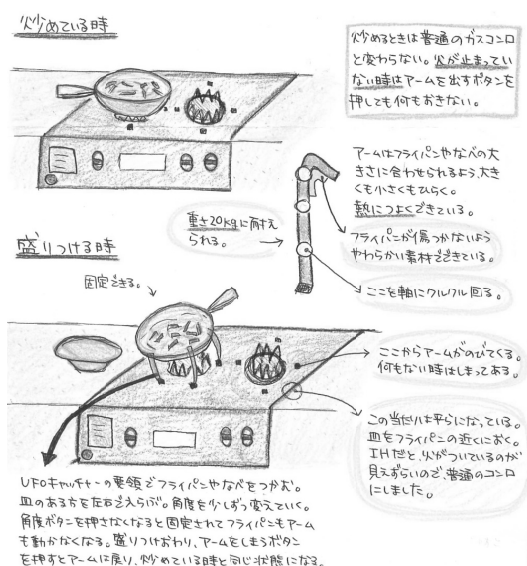 炒めている時
炒めるときは普通のガスコンロ
と変わらない。火が止まってい
ない時はアームを出すボタンを
押しても何もおきない。
アームはフライパンやなべの大
きさに合わせられるよう、大き
くも小さくもひらく。
熱につよくできている。
重さ20kgに耐え
られる。
フライパンが傷つかないよう
やわらかい素材でできている。
ここを軸にクルクル回る。
盛りつける時
固定できる。
ここからアームがのびてくる。
何もない時はしまってある。
この当たりは平らになっている。
皿をフライパンの近くにおく。
IHだと、火がついているのが
見えずらいので、普通のコンロ
にしました。
UFOキャッチャーの要領でフライパンやなべをつかむ。
皿のある方を左右でえらぶ。角度を少しずつ変えていく。
角度ボタンを押さなくなると固定されてフライパンもアーム
も動かなくなる。盛りつけおわり、アームをしまうボタン
を押すとアームは戻り、炒めている時と同じ状態になる。